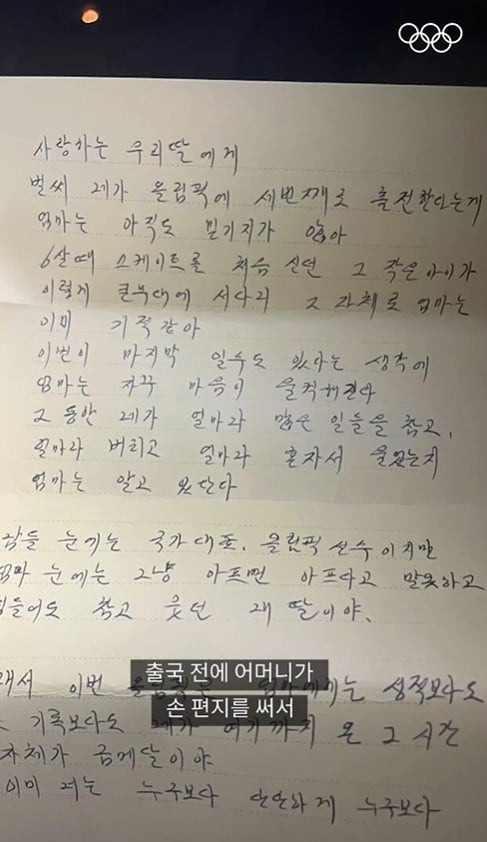 사랑하는 우리딸에게
벌써 레가 올림픽에 세번째로 출전한다는게
엄마는 아직도 믿기지가 않아
6살때 스케이트를 처음 신던 그 작은아이가
이렇게 큰무대에 서다니 그 자체로 엄마는
이미 기적같아
이번이 마지막 일수도 있다는 생각에
엄마는 자꾸 마음이 울컥해진다
그 동안 레가 얼마나 많은 일들을 참고,
얼마나 버티고 얼마나 혼자서 울었는지
엄마는 알고 있단다
눈에는 국가대표, 올림픽 선수이지만
엄마 눈에는 그냥 아프면 아프다고 말못하고
힘들어도 참고 웃던 래 딸이야.
이번 성적보다도
기록보다도 레가 여기까지 온 그 시간
자체가 금메달이야
이미 너는 누구보다 단단하게 누구보다
출국 전에 어머니가
손 편지를 써서